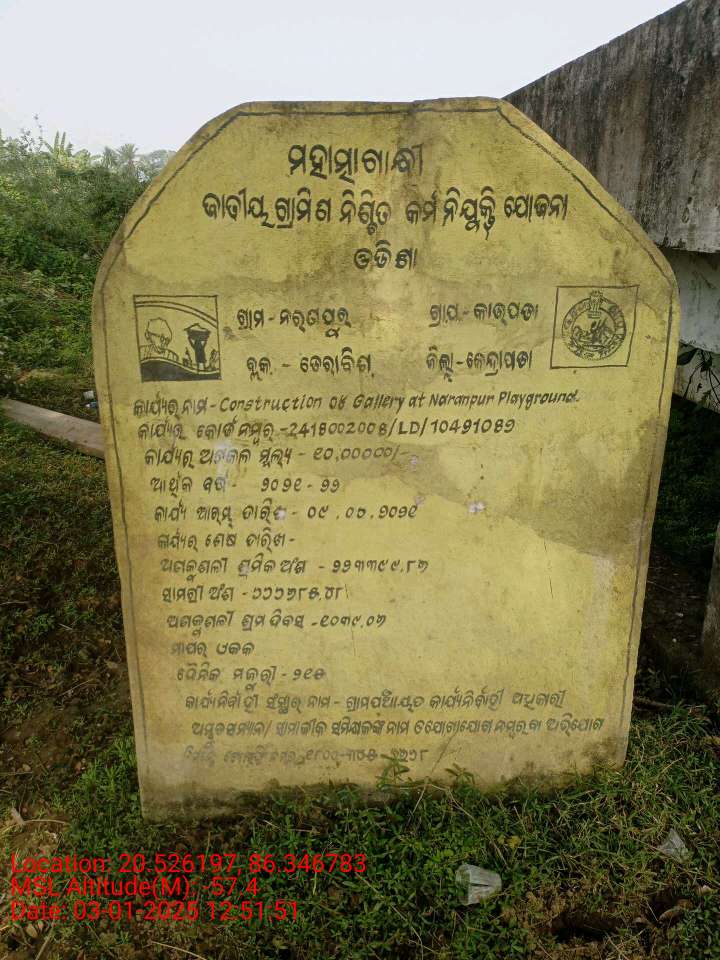 ମହାତ୍ମାଗାନ୍ଧୀ
ଜାତୀୟ ଗ୍ରାମିଣ ନିଶ୍ଚିତ କର୍ମ ନିଯୁକ୍ତି ଯୋଜନା
ଓଡିଶା
ଗ୍ରାମ - ନରଣପୁର ଗ୍ରା.ପ. - କାଜପଡା
ବ୍ଲକ - ଡେରାବିଶ ଜିଲ୍ଲା - କେନ୍ଦ୍ରାପଡା
କାର୍ଯ୍ୟର ନାମ - Construction of Gallery at Naranpur Playground.
କାର୍ଯ୍ୟର କୋର୍ଡ ନମ୍ବର - 2418002008/LD/10491089
କାର୍ଯ୍ୟର ଅଟକଳ ମୂଲ୍ୟ - ୧୦,୦୦୦୦୦/-
ଆର୍ଥିକ ବର୍ଷ - ୨୦୨୧ - ୨୨
କାର୍ଯ୍ୟ ଆରମ୍ଭ ତାରିଖ - ୦୯.୦୪.୨୦୨୧
କାର୍ଯ୍ୟର ଶେଷ ତାରିଖ -
ଅଣକୁଶଳୀ ଶ୍ରମିକ ଅଂଶ - ୨୨୩୩୯୯.୮୬
ସାମଗ୍ରୀ ଅଂଶ -
ଅଣକୁଶଳୀ ଶ୍ରମ ଦିବସ - ୧୦୩୯.୦୬
ମାପର ଏକକ
ଦୈନିକ ମଜୁରୀ - ୨୧୫
କାର୍ଯ୍ୟନିର୍ବାହୀ ସଂସ୍ଥାର ନାମ - ଗ୍ରାମପଞ୍ଚାୟତ କାର୍ଯ୍ୟନିର୍ବାହୀ ଅଧିକାରୀ
ସାମାଜୀକ ସମିକ୍ଷକଙ୍କ ନାମ ଓ ଯୋଗାଯୋଗ ନମ୍ବର ବା ଅଭିଯୋଗ
Location: 20.526197, 86.346783
MSL Altitude(M), -57.4
Date: 03-01-2025 12:51:51